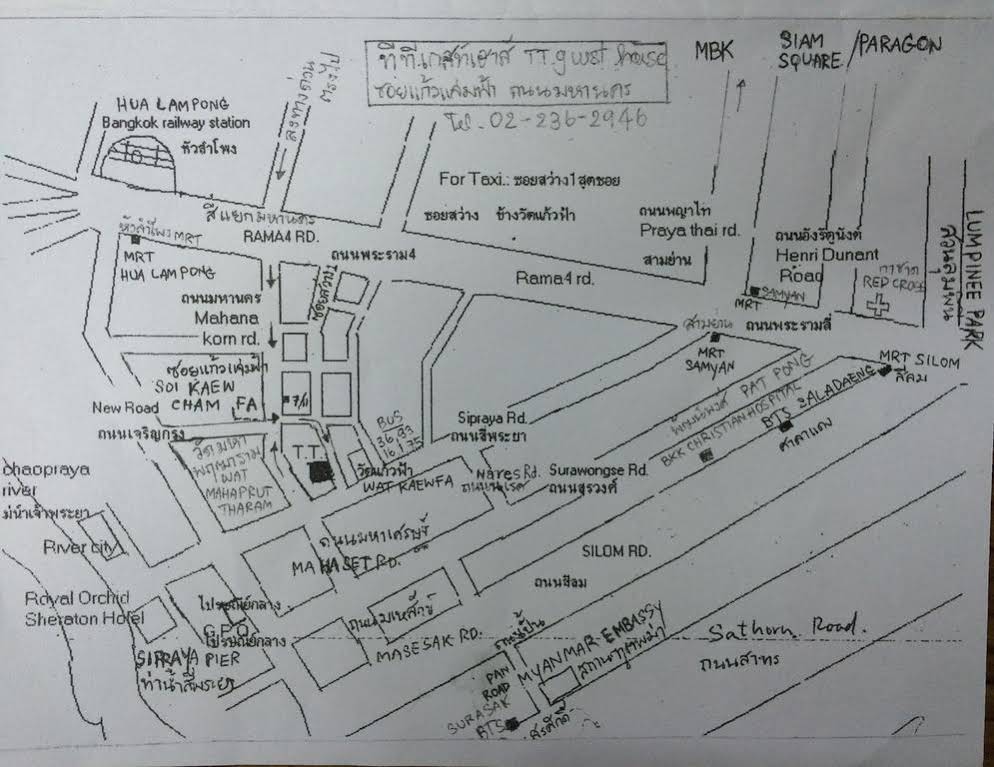 ทีทีเกสท์เฮาส์ TT.guest house
ซอยแก้วแจ่มฟ้า ถนนมหานคร
Tel. 02-236-2946
MBK
SIAM
SQUARE
/PARAGON
HUA LAMPONG
Bangkok railway station
หัวลำโพง
For Taxi.: ซอยสว่าง1สุดซอย
ซอยสว่าง ข้างวัดแก้วฟ้า
ถนนพญาไท
Praya thai rd.
สามย่าน
ถนนอังรีดูนังต์
Henri Dunant
Road
กาชาด
RED CROSS
LUMPINEE PARK
สวนลุมพินี
สี่แยกมหานคร
RAMA4 RD.
ถนนพระราม4
Rama4 rd.
หัวลำโพง MRT
MRT
HUA LAMPONG
ถนนมหานคร
Mahana
korn rd.
ซอยสว่าง
MRT
SAMYAN
สามย่าน
ถนนพระรามสี่
MRT
SAMYAN
MRT SILOM
สีลม
ซอยแก้วแจ่มฟ้า
SOI KAEW
CHAM FA
7/11
New Road
ถนนเจริญกรุง
BUS
36,93
16,1,75
Sipraya Rd.
ถนนสี่พระยา
PAT PONG
BKK CHRISTIAN HOSPITAL
BTS SALADAENG
ศาลาแดง
T.T.
วัดแก้วฟ้า
WAT KAEWFA
Nares Rd.
ถนนนเรศ
Surawongse Rd.
ถนนสุรวงศ์
WAT
MAHAPRUT
THARAM
chaopraya
river
แม่น้ำเจ้าพระยา
River city
ถนนมหาเศรษฐ์
MAHASET RD.
SILOM RD.
ถนนสีลม
Royal Orchid
Sheraton Hotel
ไปรษณีย์กลาง
G.P.O.
ไปรษณีย์กลาง
SIPRAYA PIER
ท่าน้ำสี่พระยา
ถนนมเหสักข์
MASESAK RD.
ถนนปั้น
PAN
ROAD
MYANMAR EMBASSY
สถานทูตพม่า
Sathorn Road.
ถนนสาทร
SURASAK
BTS
สุรศักดิ์